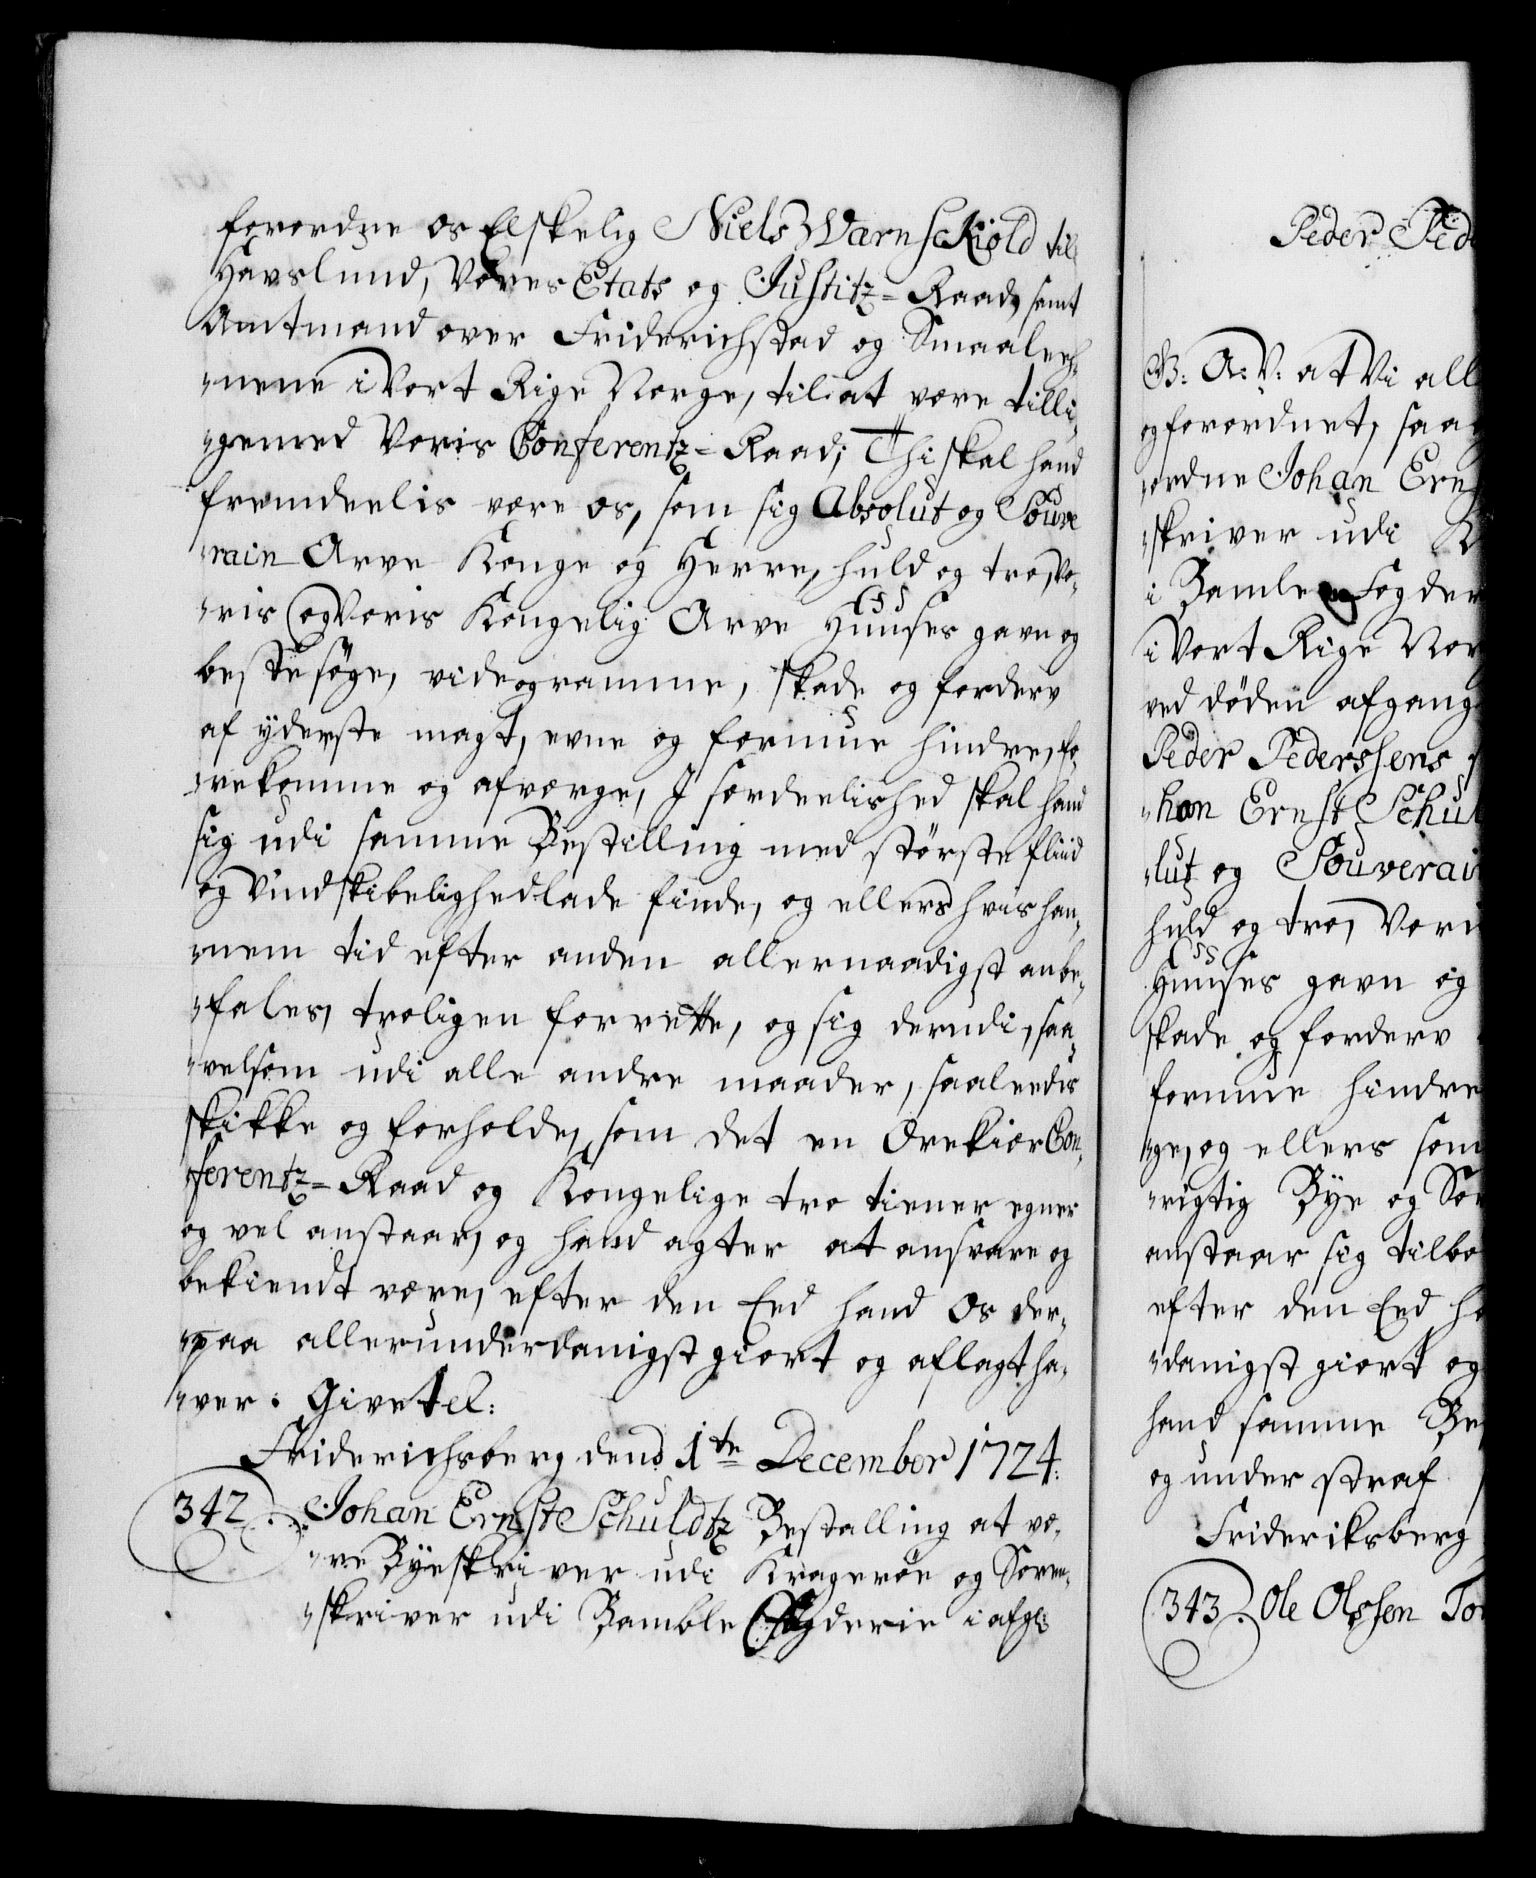 forordne os Elskelig Niels Warnschiold til
Havslund, Vores Etats og Justitz-Raad, samt
Amtmand over Friderichstad og Smaaleh-
nene i Vort Rige Norge, til at være tilli-
gemed Voris Conferentz-Raad; Thi skal hand
fremdeelis være os, som sig Absolut og Souve
rain Arve Konge og Herre, huld og tro, Vo-
ris og Voris Kongelig Arve Huuses gavn og
beste søge, vide og ramme, skade og forderv
af yderste magt, evne og formue hindre, fo-
rekomme og afværge, I særdeelished skal hand
sig udi samme Bestilling med største fliid
og Vindskibelighed lade finde, og ellers hvis han-
nem tid efter anden allernaadigst anbe-
fales, troligen forrette, og sig derudi, saa-
velsom udi alle andre maader, saaleedis
skikke og forholde, som det en Ærekiær Con-
ferentz-Raad og Kongelige tro tiener egner
og vel anstaar, og hand agter at ansvare og
bekiendt være, efter den Eed hand Os der-
paa allerunderdanigst giort og aflagt ha-
ver. Givet el:
Friderichsberg dend 1te December 1724.
342. Johan Ernst Schuldtz Bestalling at væ-
re Byeskriver udi Kragerøe og Soren-
skriver udi Bamble Fogderie i afg:
Peder Ped
G: A: V: at Vi all
og forordnet, saa
ordne Johan Ern
skriver udi K
i Bamle Fogder
i Vort Rige Nor
ved døden afgang
Peder Pederssens
han Ernst Schul
lut og Souverai
huld og tro, Vori
Huuses gavn og
skade og forderv
formue hindre
ge, og ellers som
rigtig Bye og So
anstaar sig tilbø
efter den Eed ha
danigst giort og
hand samme Be
og under straf
Frideriksberg
343. Ole Olssen To